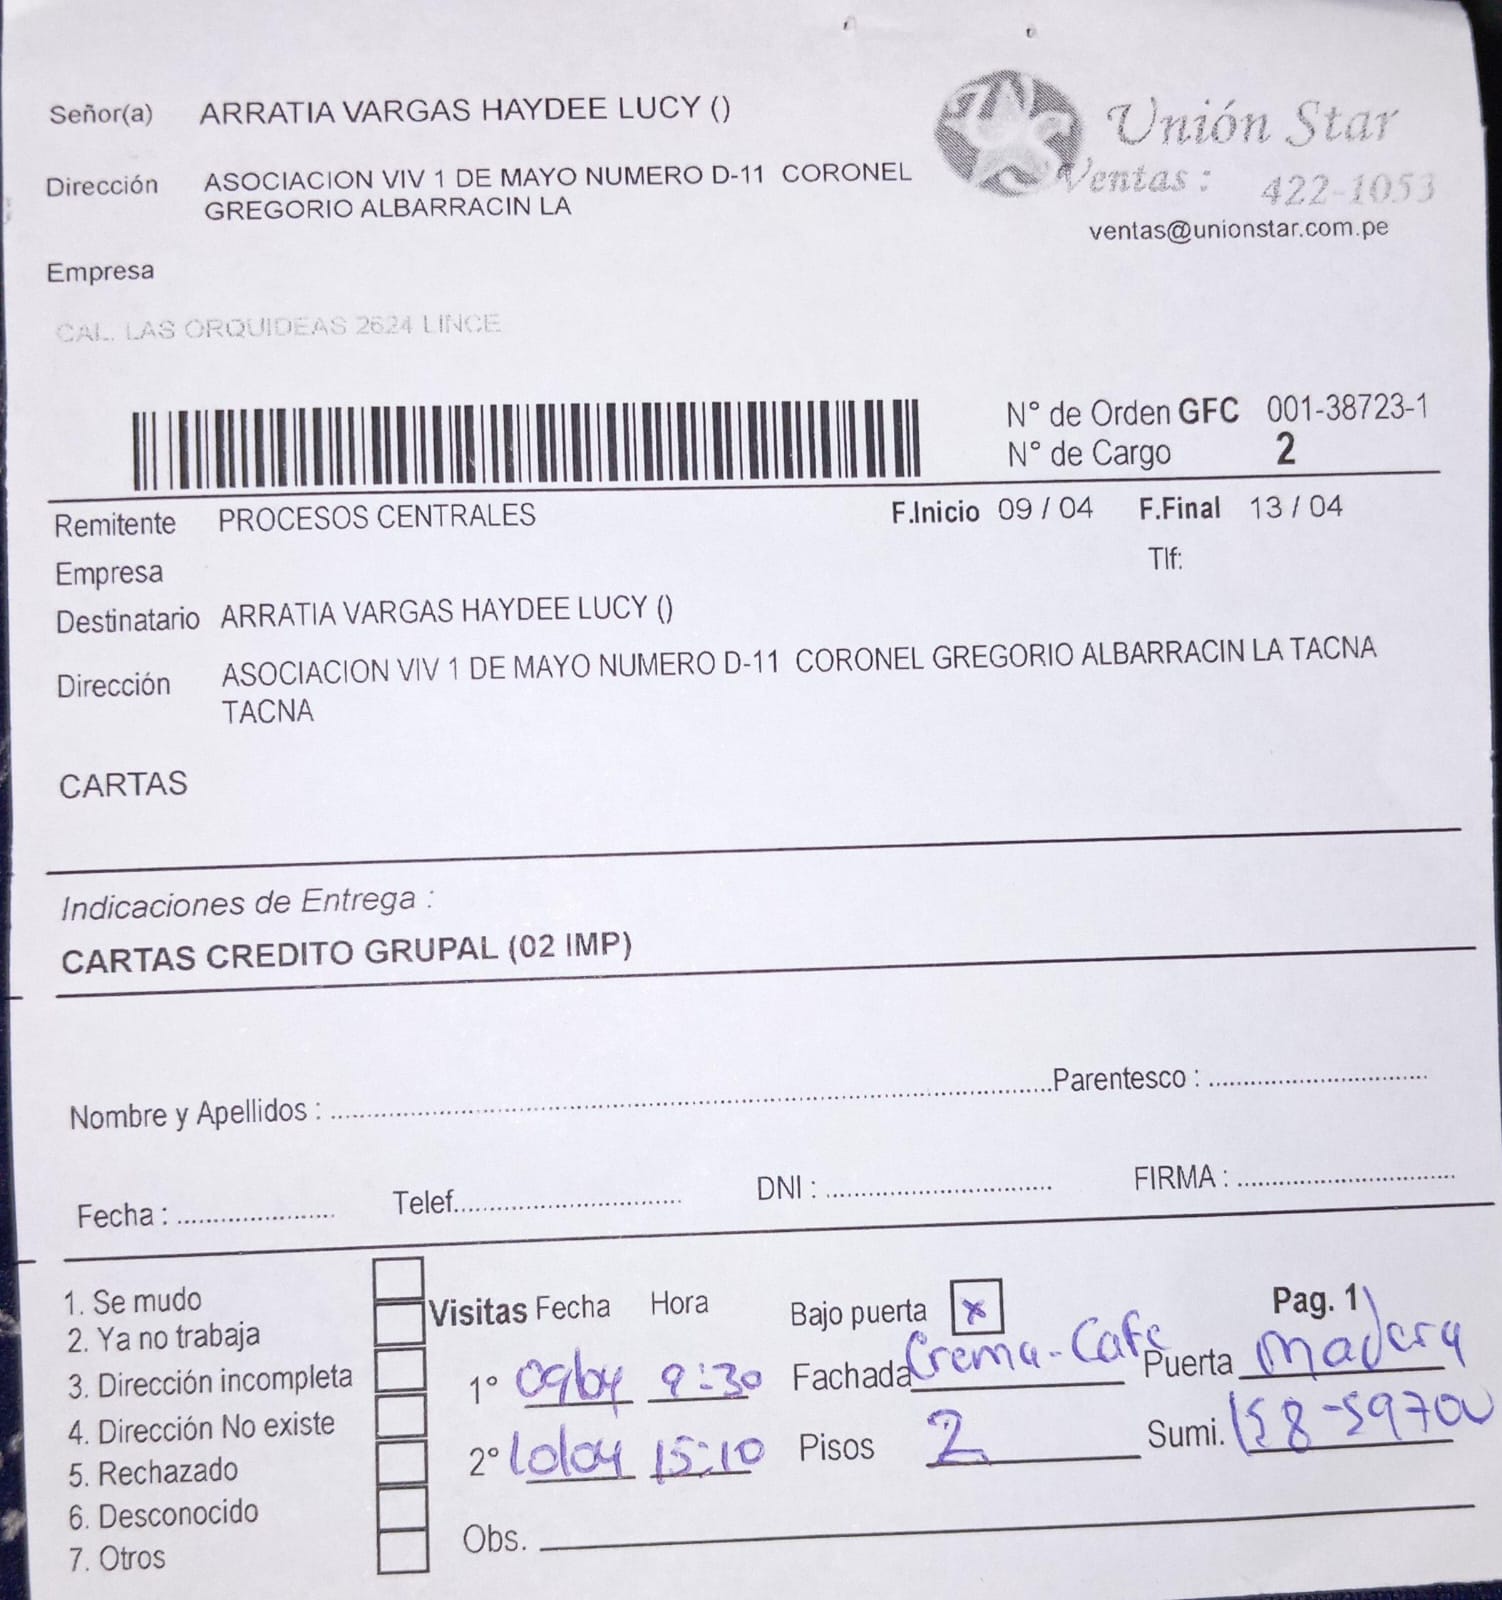 Señor(a) ARRATIA VARGAS HAYDEE LUCY ()
Unión Star
Dirección ASOCIACION VIV 1 DE MAYO NUMERO D-11 CORONEL
GREGORIO ALBARRACIN LA
Ventas : 422-1053
ventas@unionstar.com.pe
Empresa
CAL. LAS ORQUIDEAS 2624 LINCE
N° de Orden GFC 001-38723-1
N° de Cargo 2
Remitente PROCESOS CENTRALES F.Inicio 09 / 04 F.Final 13 / 04
Empresa Tlf:
Destinatario ARRATIA VARGAS HAYDEE LUCY ()
Dirección ASOCIACION VIV 1 DE MAYO NUMERO D-11 CORONEL GREGORIO ALBARRACIN LA TACNA
TACNA
CARTAS
Indicaciones de Entrega :
CARTAS CREDITO GRUPAL (02 IMP)
Nombre y Apellidos : Parentesco :
Fecha : Telef. DNI : FIRMA :
1. Se mudo
2. Ya no trabaja
3. Dirección incompleta
4. Dirección No existe
5. Rechazado
6. Desconocido
7. Otros
Visitas Fecha Hora Bajo puerta x Pag. 1
1° 09/04 9:30 Fachada Crema-Cafe Puerta Madera
2° 10/04 15:10 Pisos 2 Sumi.
Obs.